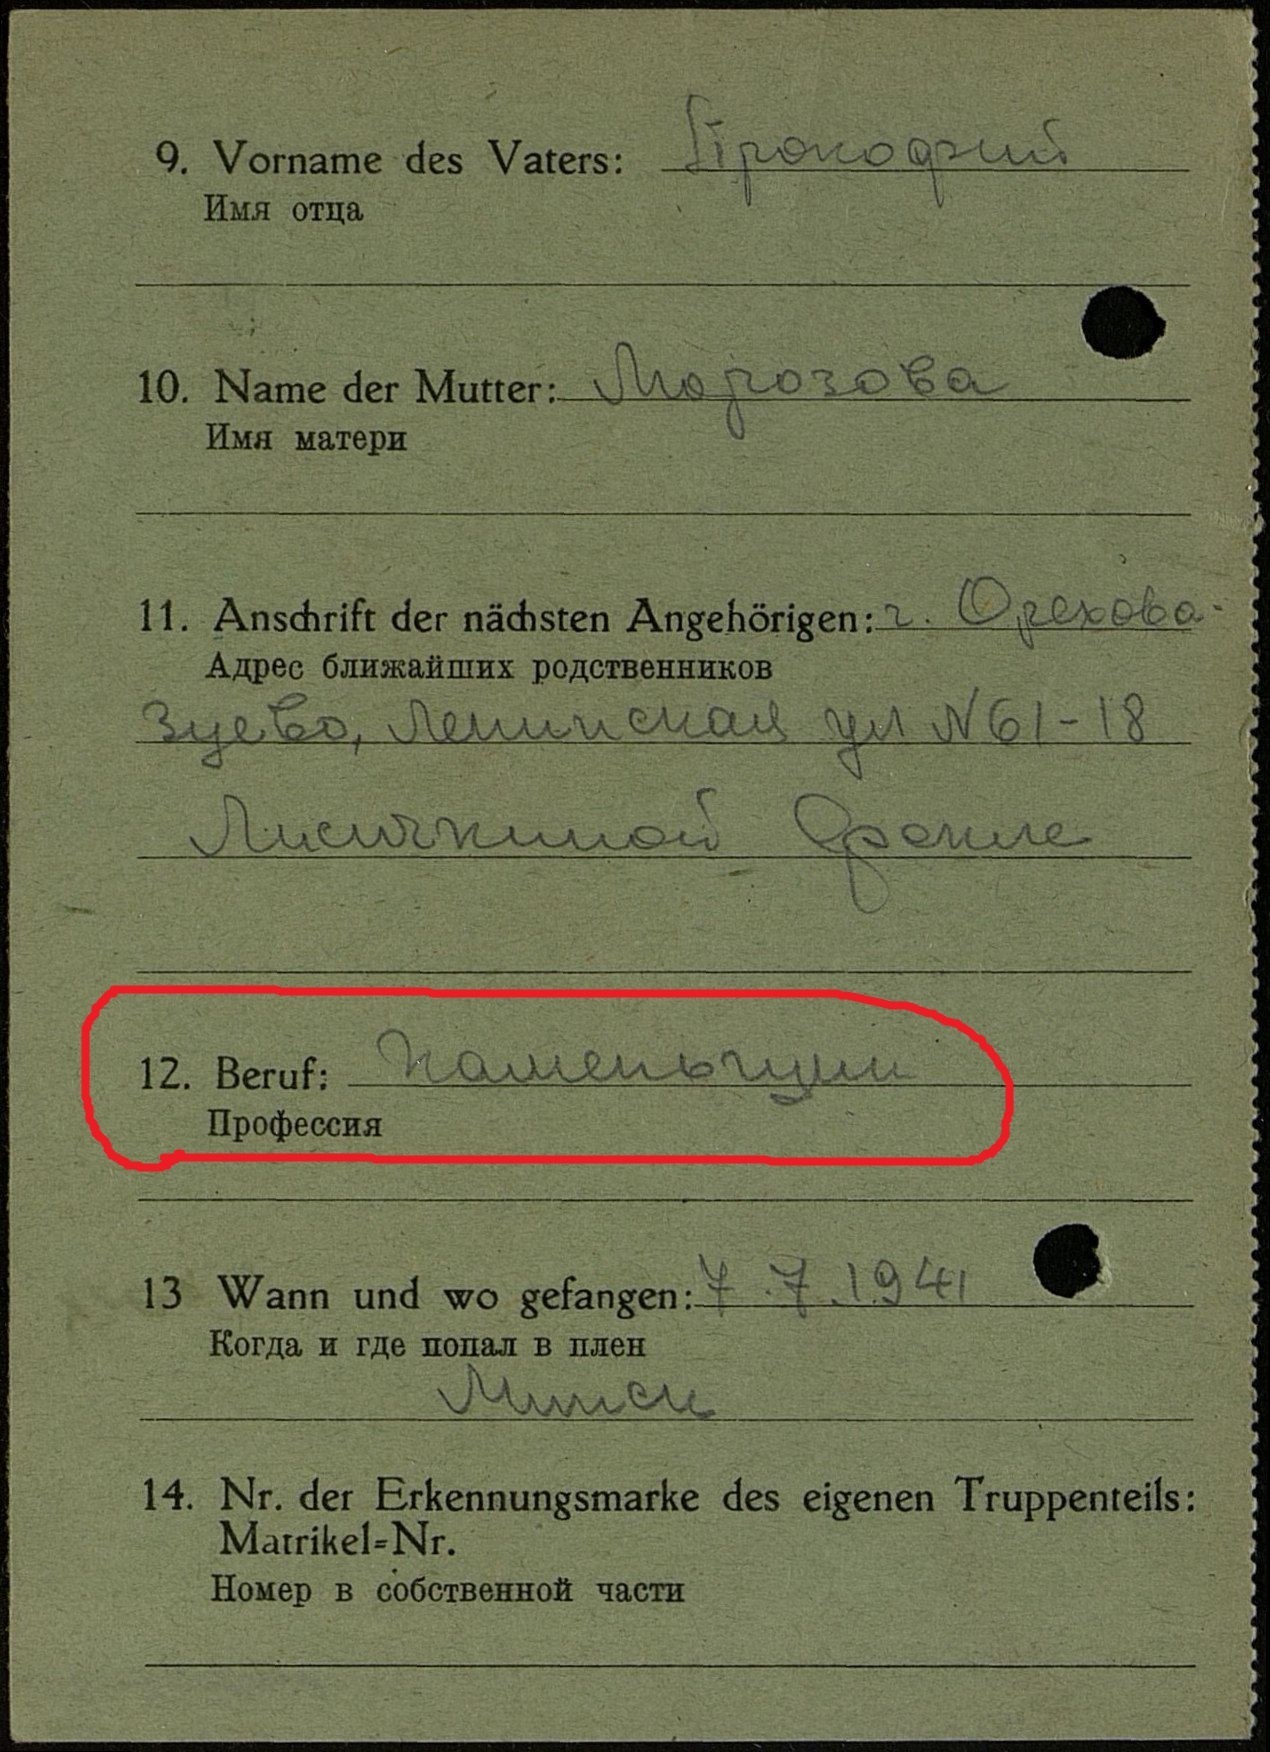 9. Vorname des Vaters: Прокофий
Имя отца
10. Name der Mutter: Морозова
Имя матери
11. Anschrift der nächsten Angehörigen: г. Орехова-
Адрес ближайших родственников
Зуево, Ленинская ул N 61-18
Лисичкиной
12. Beruf: Каменьщик
Профессия
13 Wann und wo gefangen: 7.7.1941
Когда и где попал в плен
Минск
14. Nr. der Erkennungsmarke des eigenen Truppenteils:
Matrikel=Nr.
Номер в собственной части